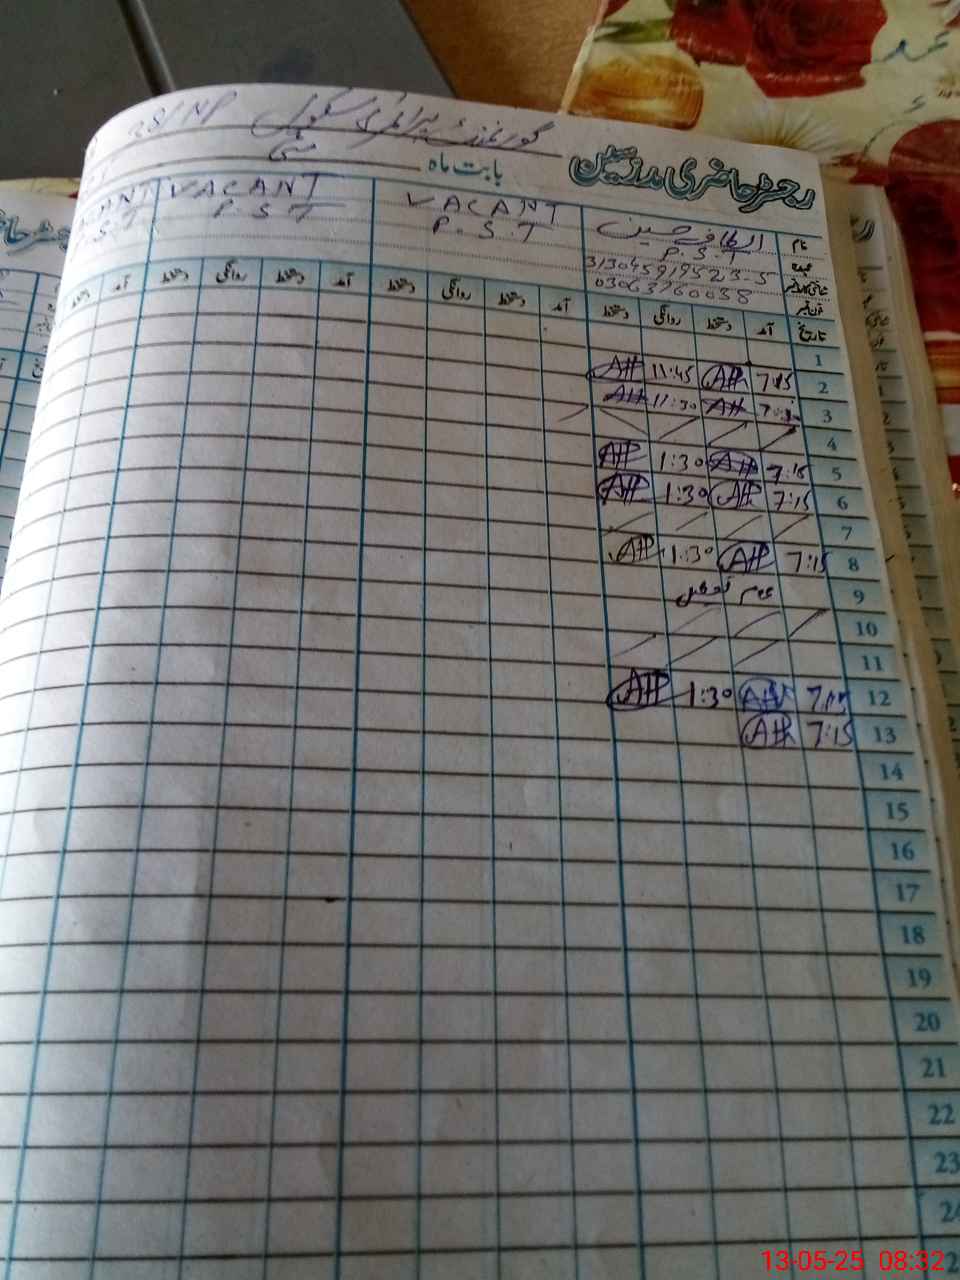 گورنمنٹ پرائمری سکول 28/NP
رجسٹر حاضری مدرسین بابت ماہ مئی
نام الطاف حسین VACANT VACANT
P.S.T P.S.T P.S.T
3130459195235
03063760038
تاریخ آمد دستخط روانگی دستخط آمد دستخط روانگی دستخط آمد دستخط روانگی دستخط آمد دستخط
1
2 7:15 AH 11:45 AH
3 AH 11:30 AH
4
5 7:15 AH 1:30 AH
6 7:15 AH 1:30 AH
7
8 7:15 AH 1:30 AH
9 یوم
10
11
12 7:15 AH 1:30 AH
13 7:15 AH
14
15
16
17
18
19
20
21
22
23
13-05-25 08:32